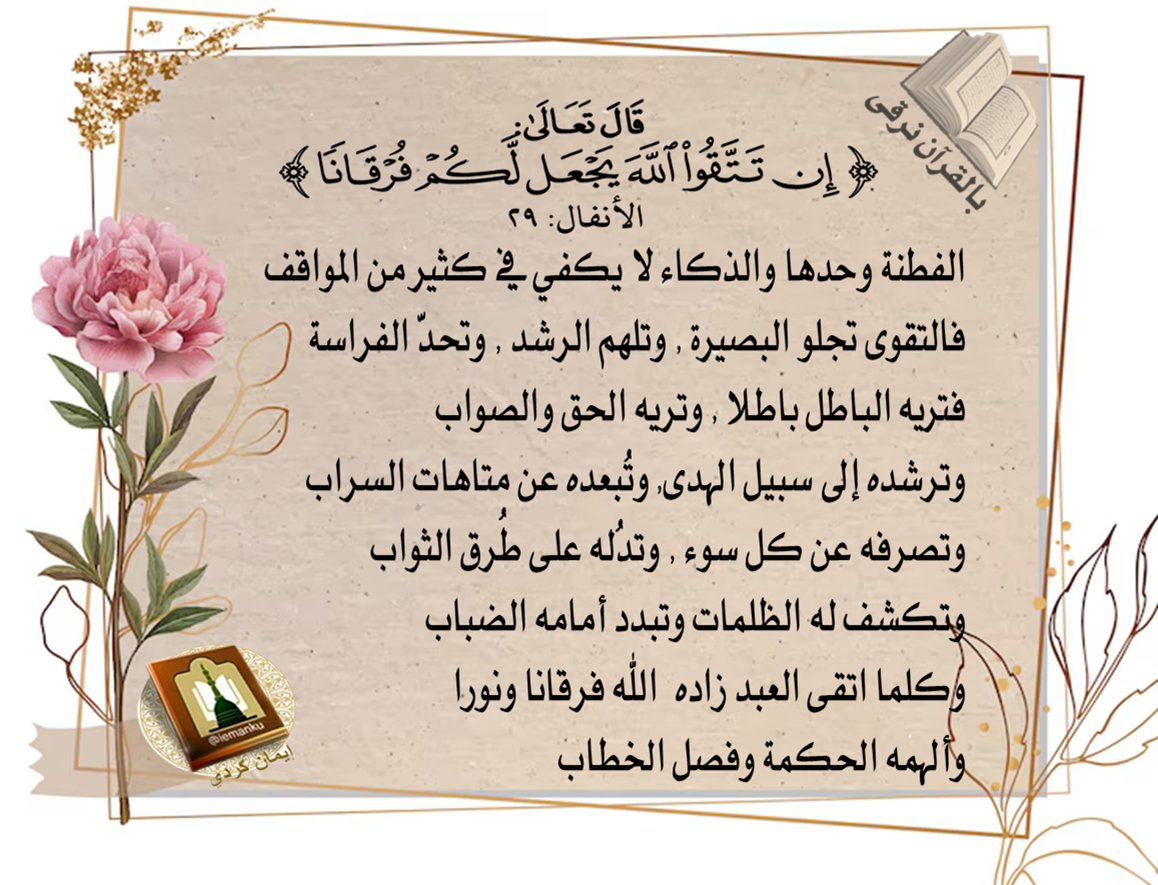 بالقرآن نرقى
قَالَ تَعَالَىٰ:
﴿ إِن تَتَّقُوا۟ ٱللَّهَ يَجْعَل لَّكُمْ فُرْقَانًا ﴾
الأنفال: ٢٩
الفطنة وحدها والذكاء لا يكفي في كثير من المواقف
فالتقوى تجلو البصيرة , وتلهم الرشد , وتحدّ الفراسة
فتريه الباطل باطلا , وتريه الحق والصواب
وترشده إلى سبيل الهدى, وتُبعده عن متاهات السراب
وتصرفه عن كل سوء , وتدُله على طُرق الثواب
وتكشف له الظلمات وتبدد أمامه الضباب
وكلما اتقى العبد زاده الله فرقانا ونورا
وألهمه الحكمة وفصل الخطاب
@iemanku
إيمان كردي